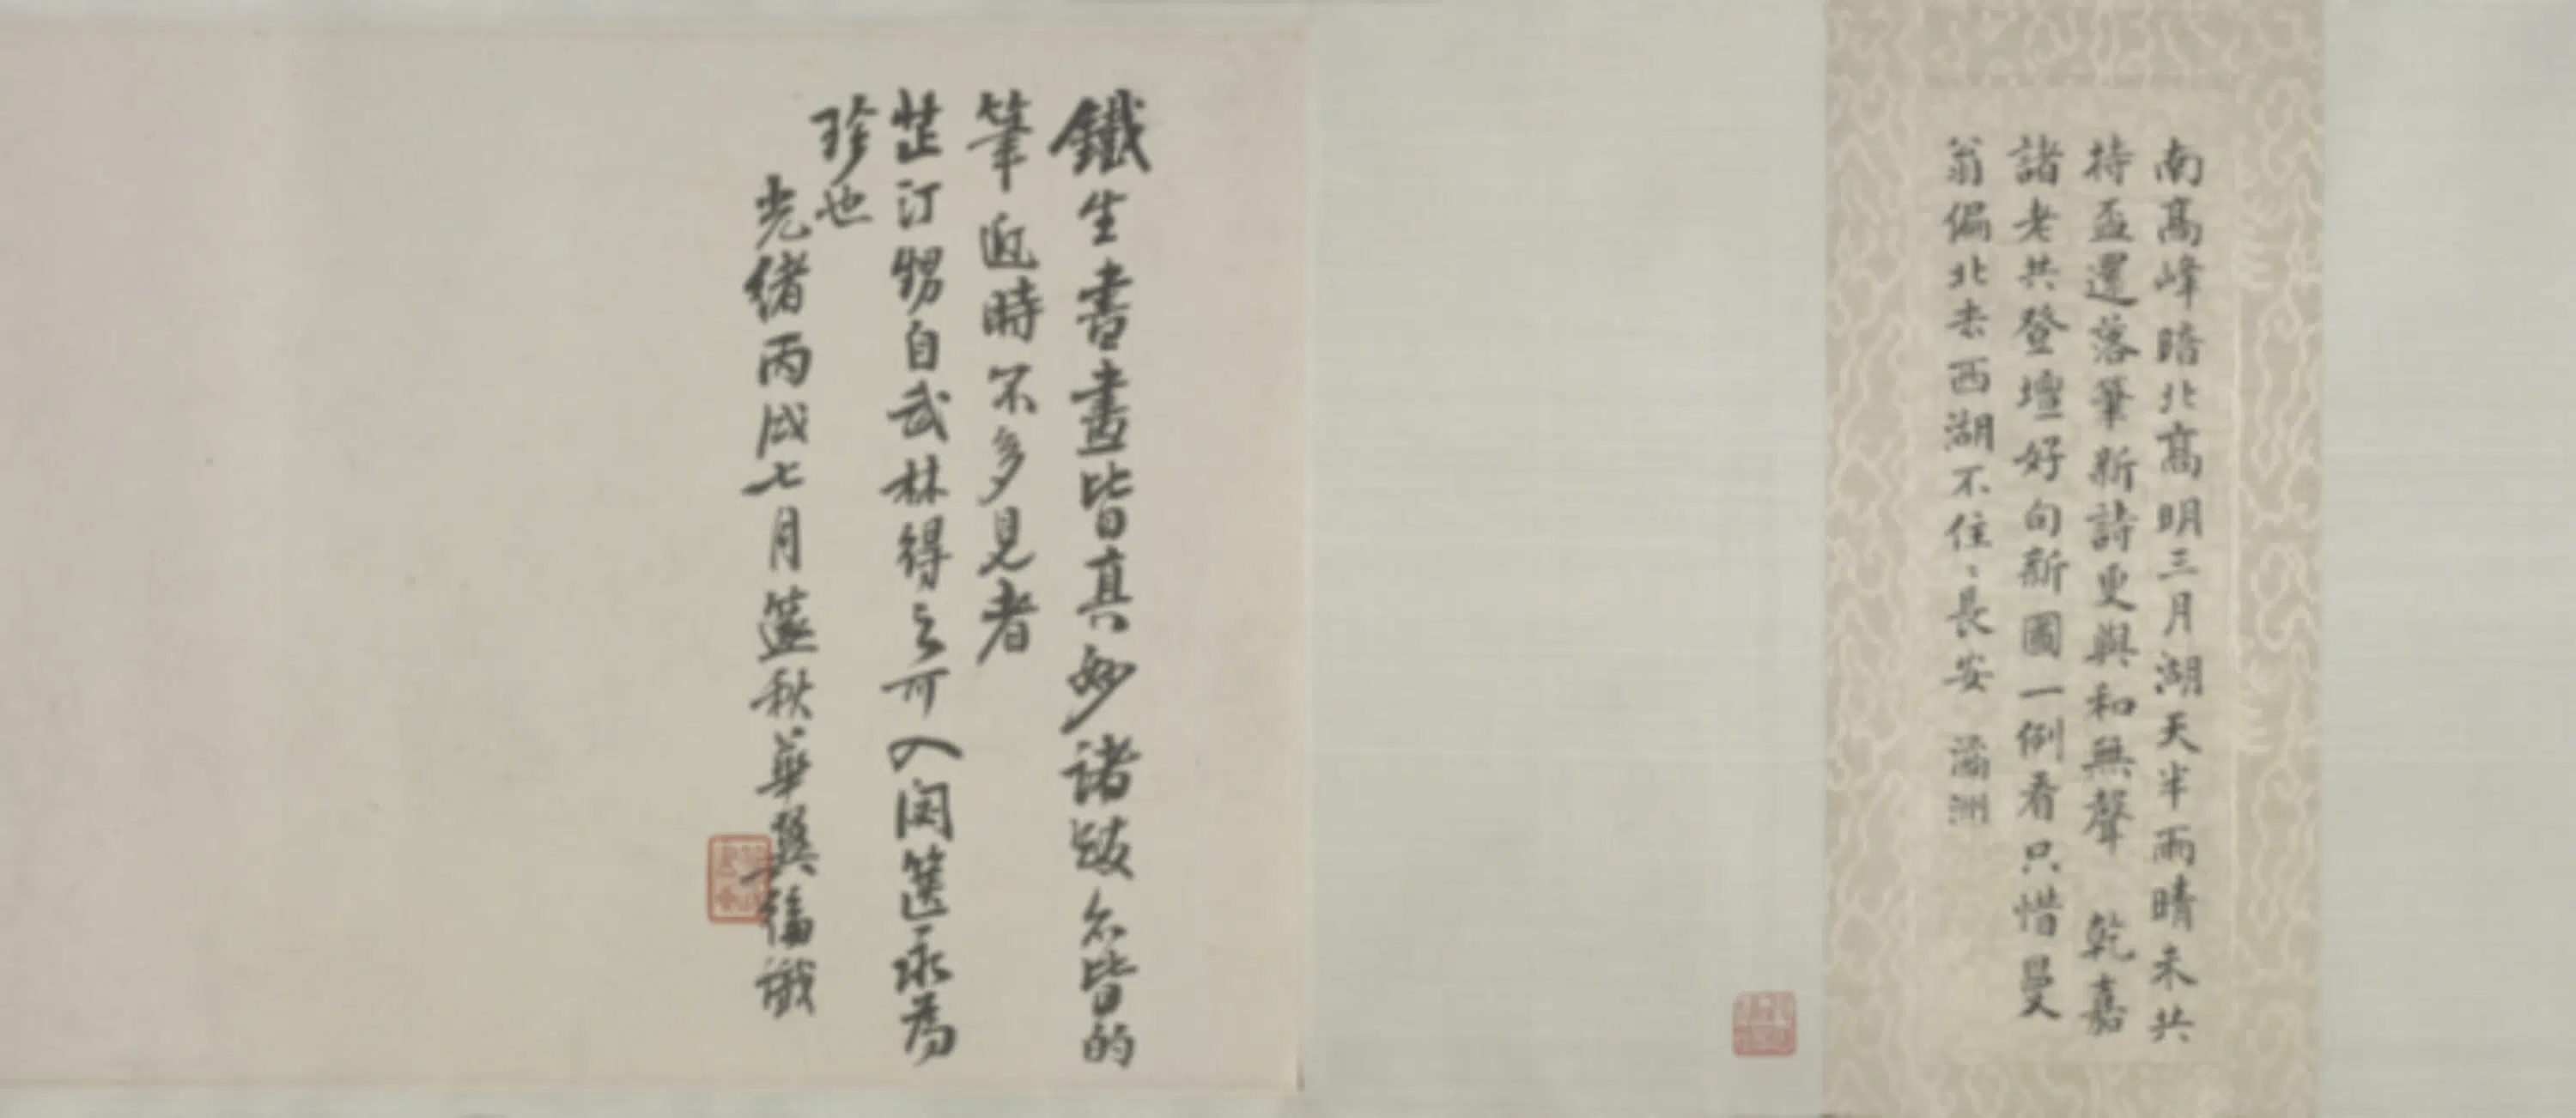 南高峰暗北高明三月湖天半雨晴未共
持盃還落筆新詩更與和無聲 乾嘉
諸老共登壇好句新圖一例看只惜曼
翁偏北去西湖不住、長安 滿洲
鐵生書畫皆真妙諸跋亦皆的
筆近時不多見者
芷汀甥自武林得之可入閩篋永為
珍也
光緒丙戌七月籧秋華翼綸識